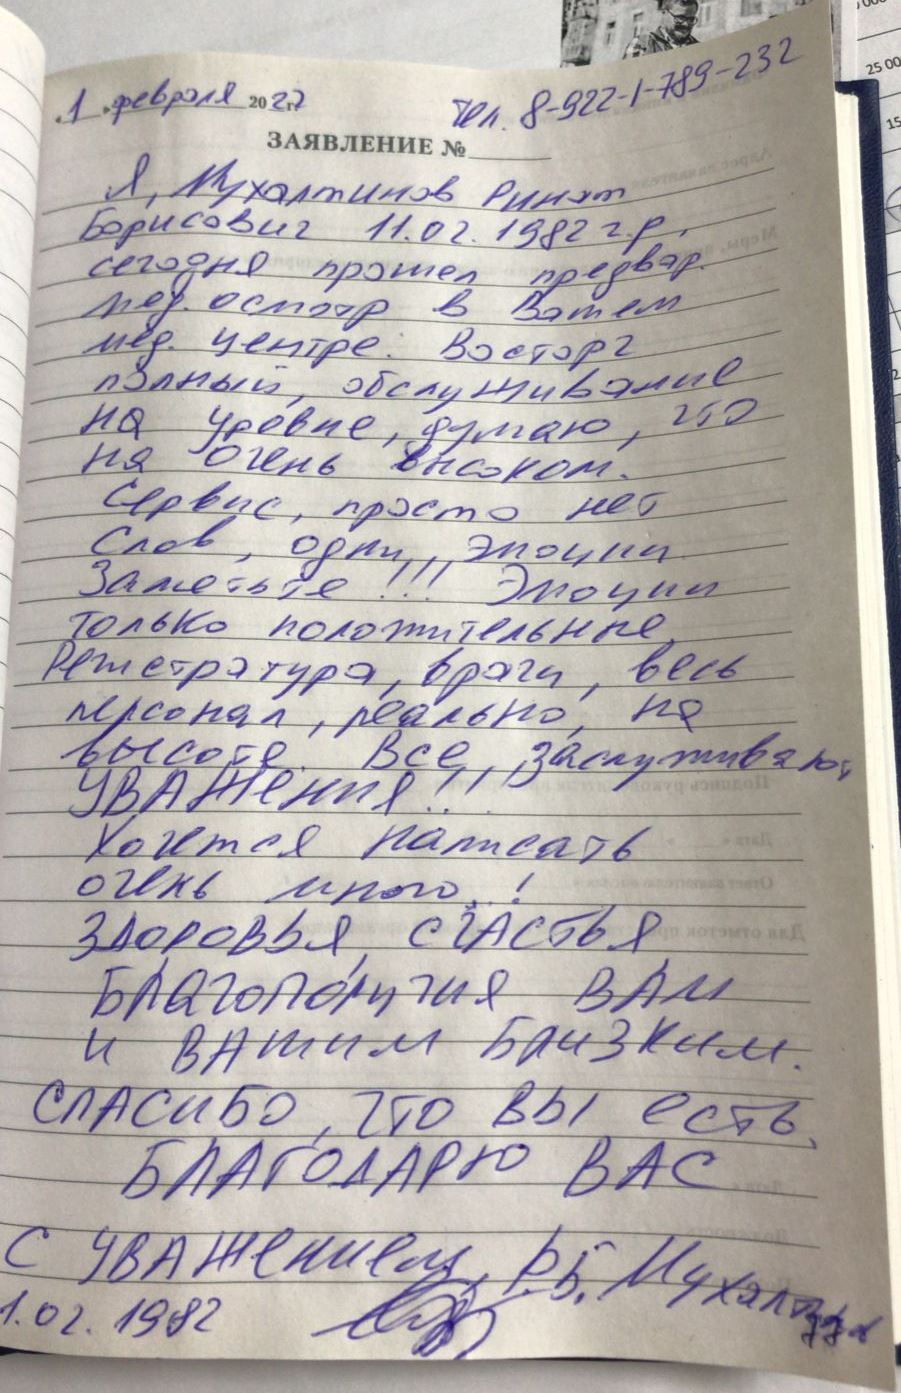 1 февраля 2022 г. тел. 8-922-1-789-232
ЗАЯВЛЕНИЕ №
Я, Мухалтинов Ринат
Борисович 11.02.1982 г.р.,
сегодня прошел предвар.
мед. осмотр в Вашем
мед. центре. Восторг
полный, обслуживание
на уровне, думаю, что
на очень высоком.
Сервис, просто нет
слов, одни, эмоции.
Заметьте!!! Эмоции
только положительные.
Регистратура, врачи, весь
персонал, реально, на
высоте. Все, заслуживают
УВАЖЕНИЯ!!!
Хочется написать
очень много..!
ЗДОРОВЬЯ, СЧАСТЬЯ,
БЛАГОПОЛУЧИЯ ВАМ
и ВАШИМ БЛИЗКИМ.
СПАСИБО, ЧТО ВЫ ЕСТЬ.
БЛАГОДАРЮ ВАС
С УВАЖЕНИЕМ, Р.Б.
1.02.1982
25 00
15